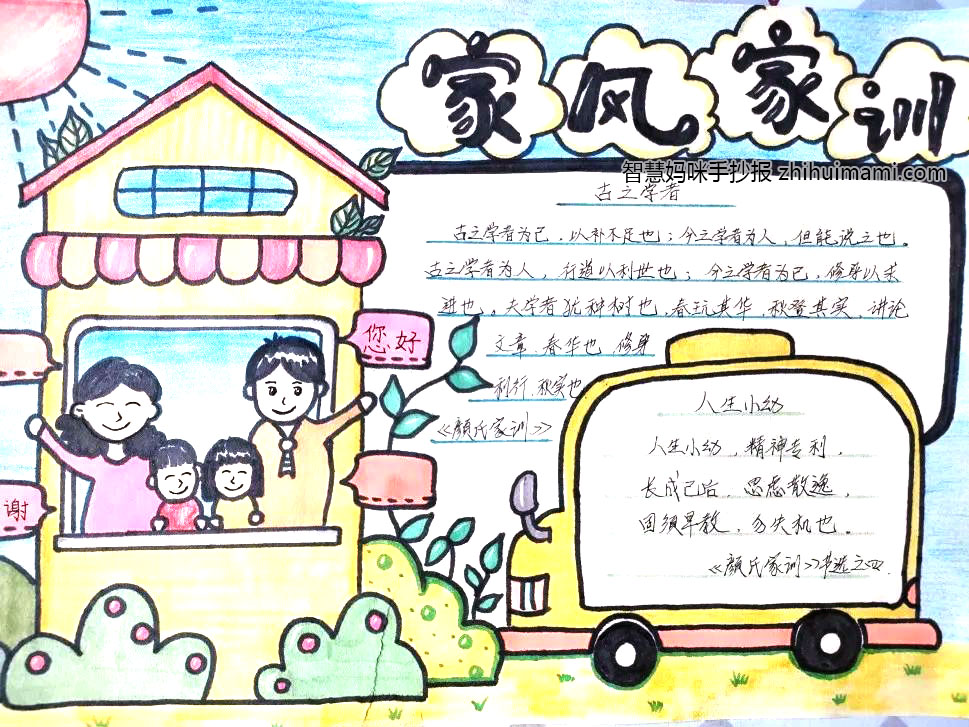 家风家训
智慧妈咪手抄报 zhihuimami.com
古之学者
古之学者为己，以补不足也；今之学者为人，但能说之也。
古之学者为人，行道以利世也；今之学者为己，修身以求
进也。夫学者犹种树也，春玩其华，秋登其实，讲论
文章，春华也，修身
利行，秋实也
《颜氏家训》
您好
谢
人生小幼
人生小幼，精神专利，
长成已后，思虑散逸，
固须早教，勿失机也。
《颜氏家训》节选之四